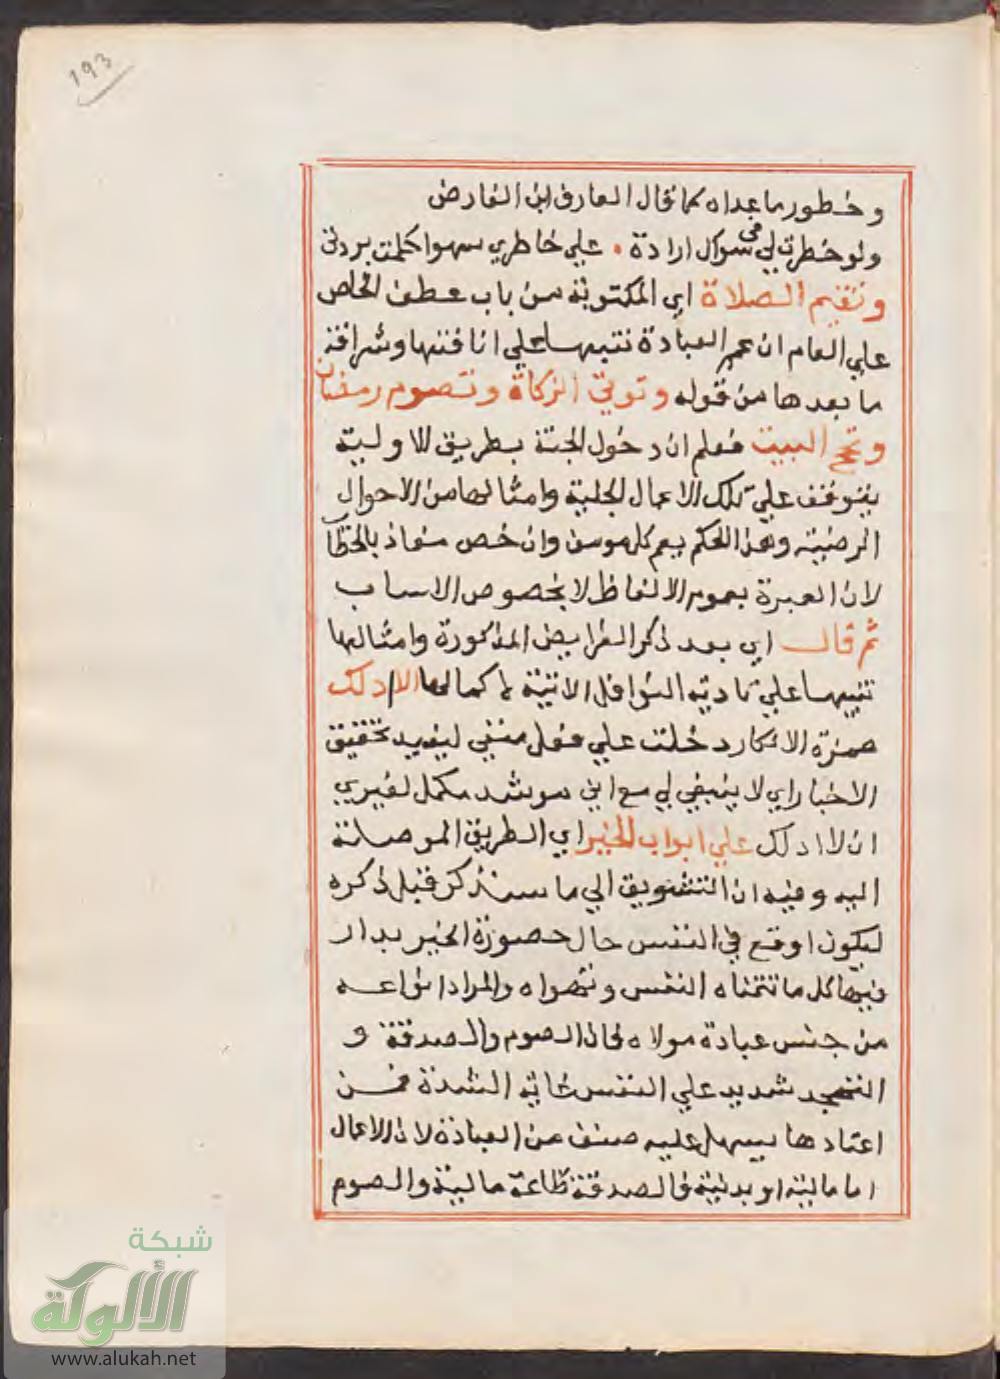 193
وخطور ما عداه كما قال العارف ابن الفارض
ولو خطرت لي في سواك ارادة • علي خاطري سهوا حكمت بردتي
وتقيم الصلاة اي المكتوبة من باب عطف الخاص
علي العام ان عم العبادة تنبيها علي انافتها وشرافة
ما بعدها من قوله وتوتي الزكاة وتصوم رمضان
وتحج البيت فعلم ان دخول الجنة بطريق الاولية
يتوقف علي تلك الاعمال الجلية وامثالها من الاحوال
الرضية وهذا الحكم يعم كل مومن وان خص معاذ بالخطاب
لان العبرة بعموم الالفاظ لا بخصوص الاسباب
ثم قال اي بعد ذكر الفرايض المذكورة وامثالها
تنبيها علي تادية النوافل الاتية لاكمالها الا ادلك
همزة الانكار دخلت علي فعل منفي ليفيد تحقيق
الاخبار اي لا ينبغي لي مع اني مرشد مكمل لغيري
ان لا ادلك علي ابواب الخير اي الطريق الموصلة
اليه وفيه ان التشويق الي ما سيذكر قبل ذكره
ليكون اوقع في النفس حال حصوره الخير بدار
فيها كل ما تتمناه النفس وتهواه والمراد انواعه
من جنس عبادة مولاه فان الصوم والصدقة و
التهجد شديد علي النفس غاية الشدة فمن
اعتادها يسهل عليه صنف من العبادة لان الاعمال
اما مالية او بدنية فالصدقة طاعة مالية والصوم
شبكة
الألوكة
www.alukah.net